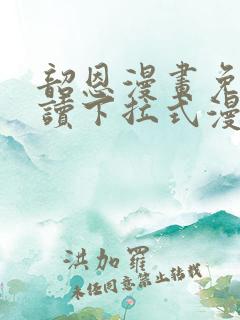 韶恩漫畫免
讀下拉式漫
洪加羅
未经同意禁止转载